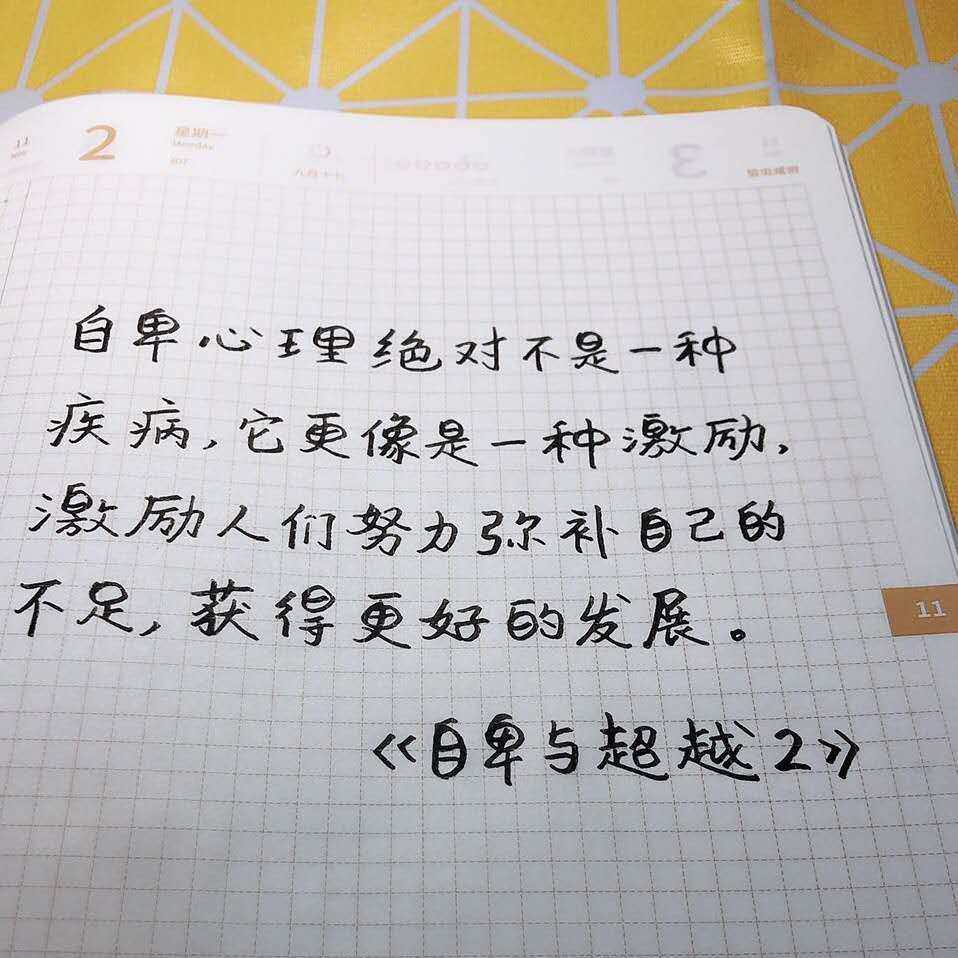 11
2
星期一
Monday
307
八月十七
3
自卑心理绝对不是一种
疾病,它更像是一种激励,
激励人们努力弥补自己的
不足,获得更好的发展。
11
《自卑与超越2》